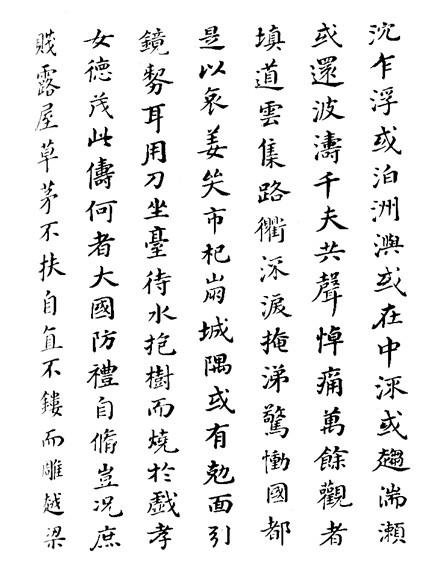 沈乍浮或泊洲嶼或在中流或趨湍瀨
或還波濤千夫共聲悼痛萬餘觀者
填道雲集路衢流淚掩涕驚慟國都
是以哀姜哭市杞崩城隅或有剋面引
鏡剺耳用刀坐臺待水抱樹而燒於戲孝
女德茂此儔何者大國防禮自脩豈況庶
賤露屋草茅不扶自直不鏤而雕越梁